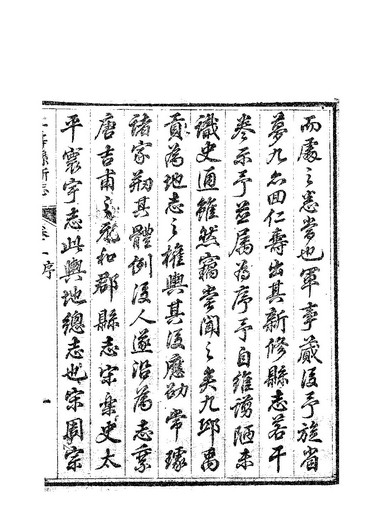 而處之悉當也軍事蕆後予旋省
夢九亦回仁壽出其新修縣志若干
卷示予並属為序予自維谫陋未
識史通雖然竊嘗聞之矣九邱禹
貢為地志之權輿其後應劭常璩
諸家刱其體例後人遂沿為志乘
唐吉甫之元和郡縣志宋樂史太
平寰宇志此輿地總志也宋周宗
縣新志 卷一序 一